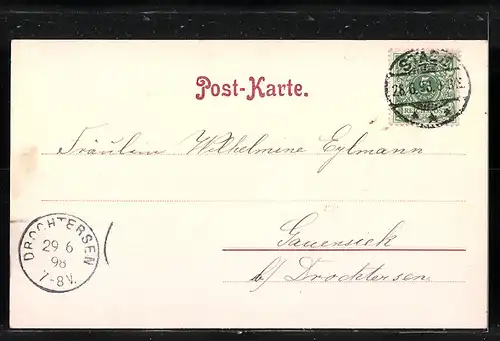 Post-Karte.
STADE
28.6.98.
Fräulein Wilhelmine Eylmann
Gauensiek
b/ Drochtersen
DROCHTERSEN
29 6
98
7-8V.